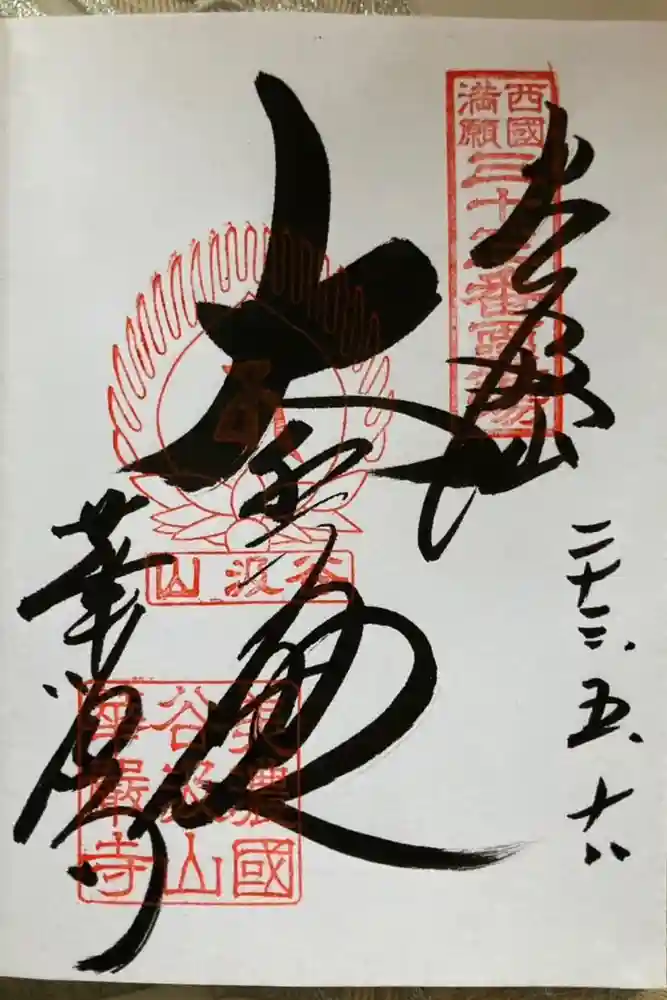 西國
満願
三十三番霊場
谷汲山
二十三、五、十八
大悲殿
谷汲山
華厳寺
美濃國
谷汲山
華嚴寺